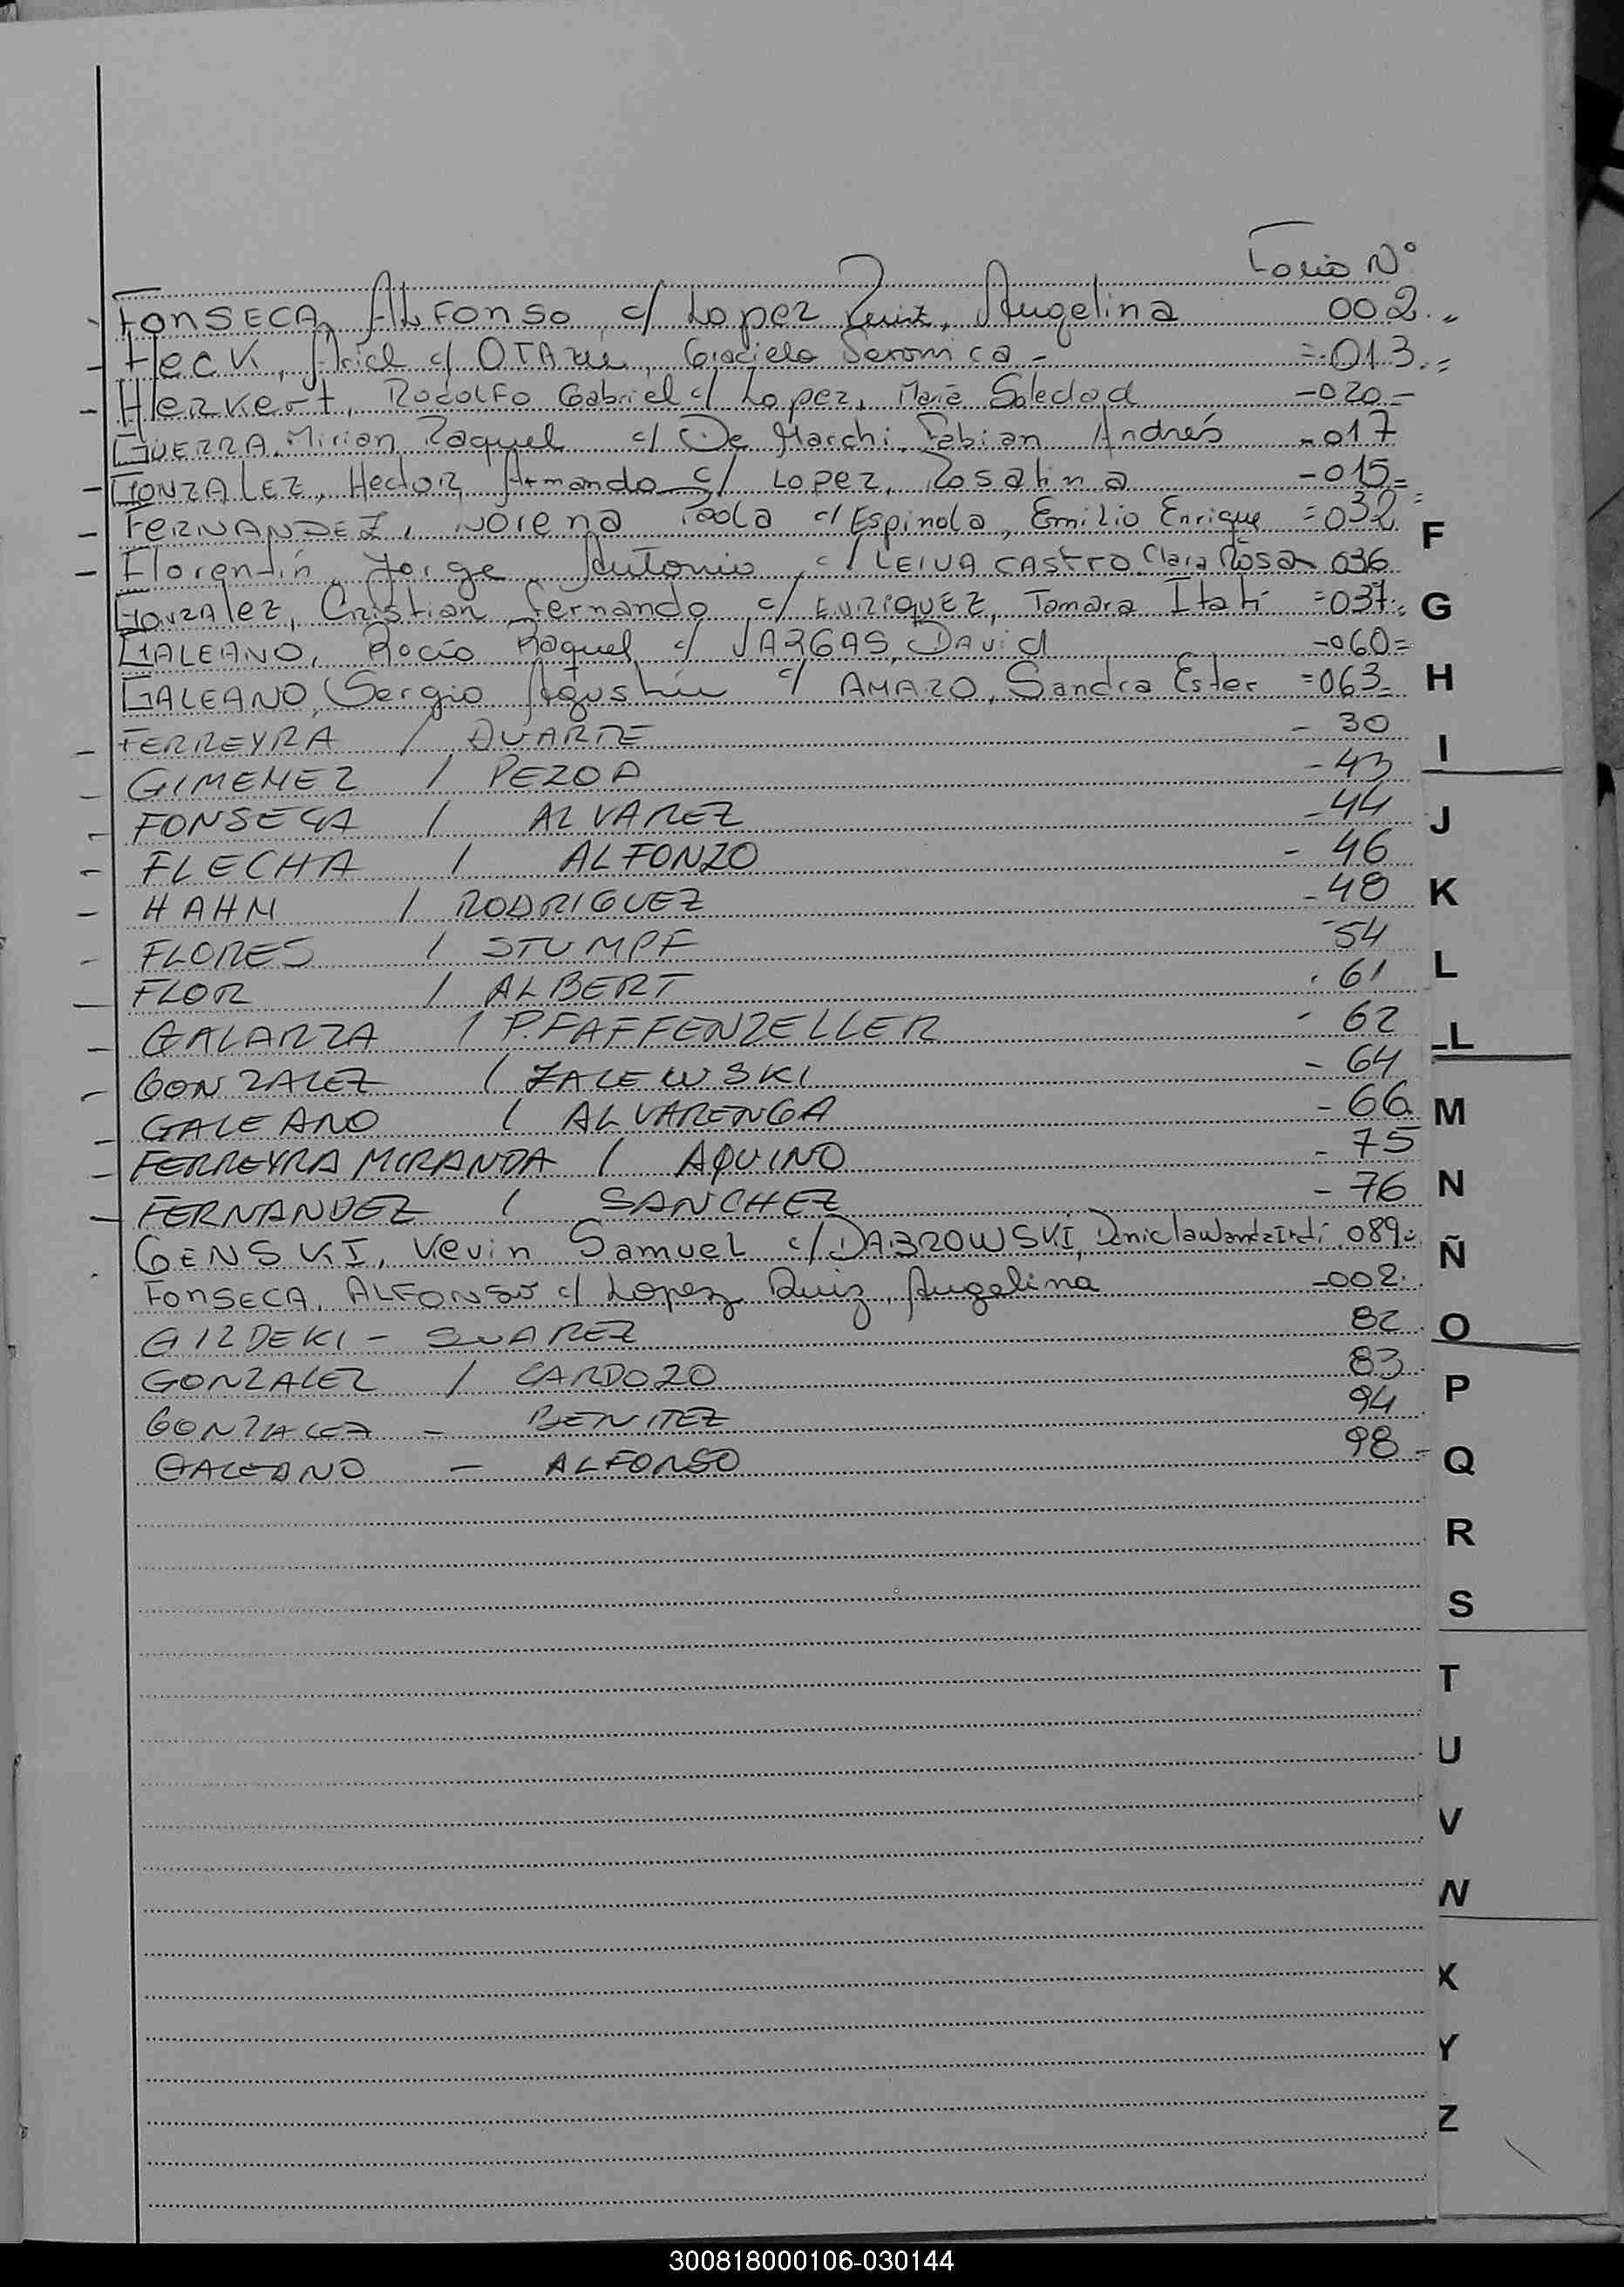 Folio Nº
FONSECA, ALFONSO c/ Lopez Ruiz, Angelina 002.,
Feck, Ariel c/ OTAZU, Graciela Veronica - =013.=
Herkert, Rodolfo Gabriel c/ Lopez, Maria Soledad -020-
GUERRA, Mirian Raquel c/ De Marchi, Fabian Andrés -017
GONZALEZ, Hector Armando c/ Lopez, Rosalina -015=
FERNANDEZ, Norena Paola c/ Espinola, Emilio Enrique =032=
F
Florentín, Jorge Antonio c/ LEIVA CASTRO Clara Rosa 036
Gonzalez, Cristian Fernando c/ ENRIQUEZ, Tamara Itatí =037.=
G
GALEANO, Rocío Raquel c/ VARGAS, David -060=
GALEANO, Sergio Agustín c/ AMARO, Sandra Ester =063-
H
FERREYRA / DUARTE - 30
I
GIMENEZ / PEZOA - 43
FONSECA / ALVAREZ - 44
J
FLECHA / ALFONZO - 46
HAHN / RODRIGUEZ - 48
K
FLORES / STUMPF - 54
L
FLOR / ALBERT - 61
GALARZA / PFAFFENZELLER - 62
LL
GONZALEZ / ZALEWSKI - 64
GALEANO / ALVARENGA - 66
M
FERREYRA MIRANDA / AQUINO - 75
FERNANDEZ / SANCHEZ - 76
N
GENSKI, Kevin Samuel c/ DABROWSKI, 089
Ñ
FONSECA, ALFONSO c/ Lopez Ruiz, Angelina -002.
GILDEKI - SUAREZ 82
O
GONZALEZ / CARDOZO 83
P
GONZALEZ - BENITEZ 94
GALEANO - ALFONSO 98-
Q
R
S
T
U
V
W
X
Y
Z
300818000106-030144